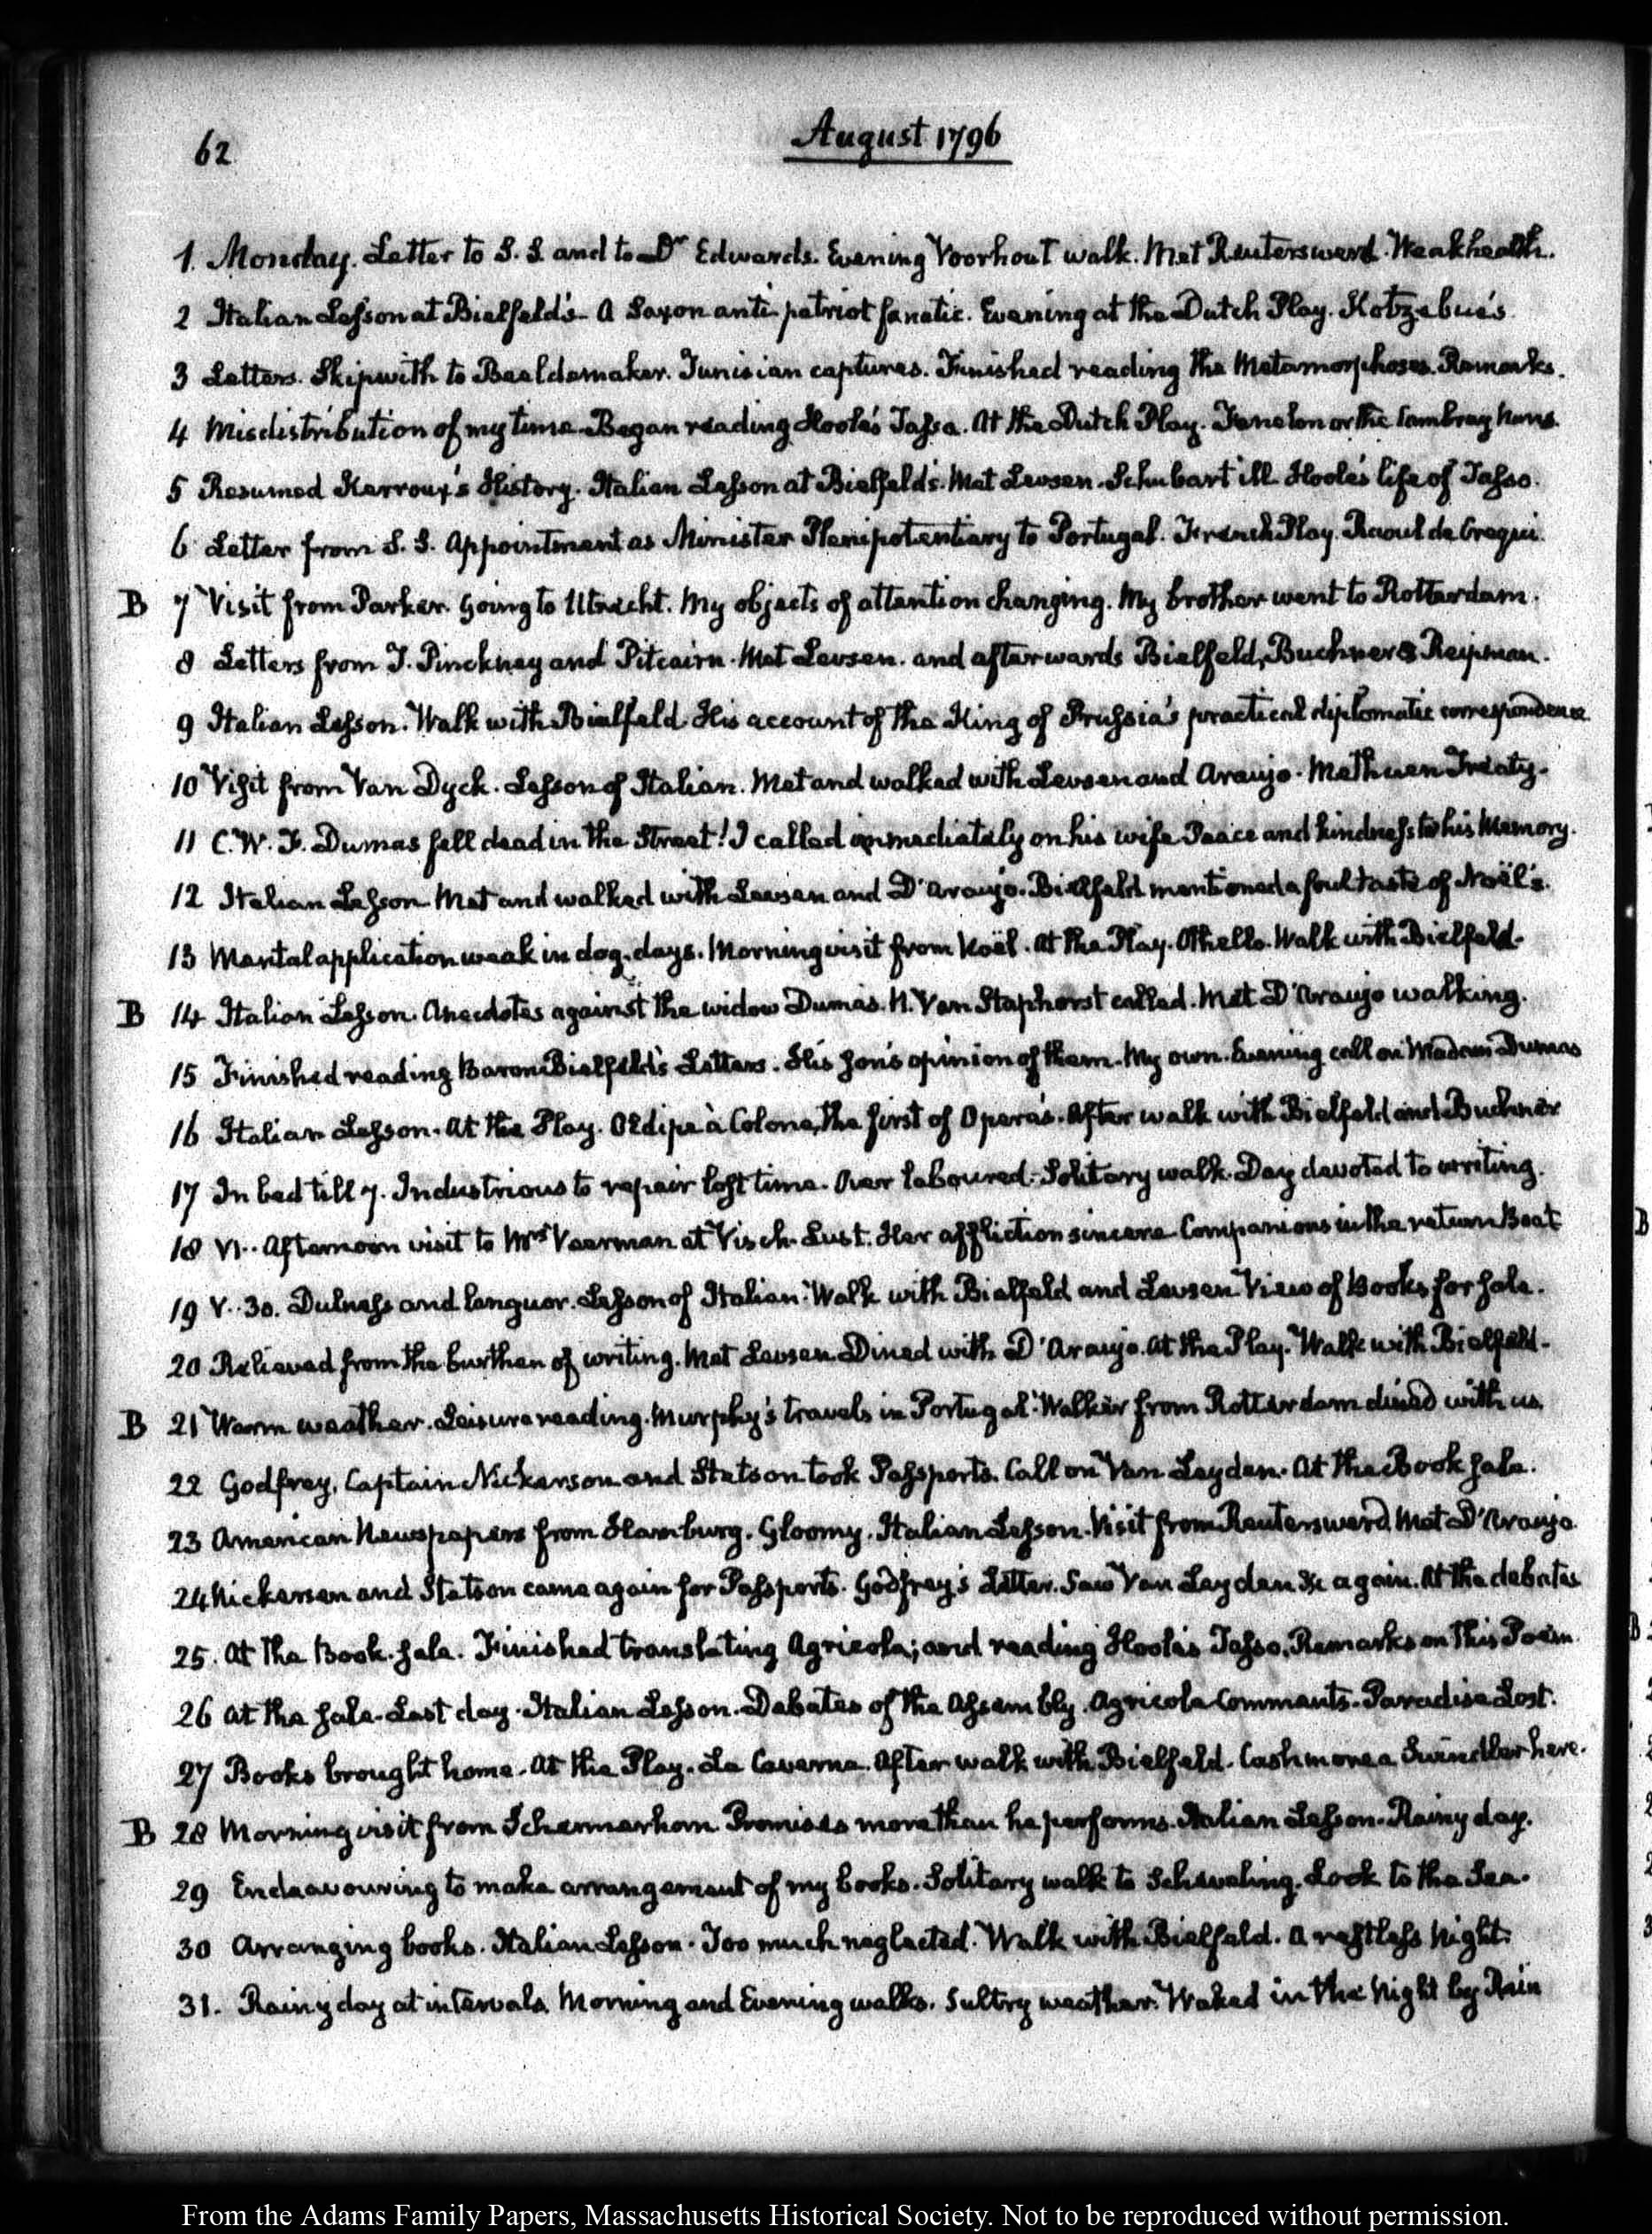 62
August 1796
1. Monday. Letter to S. S. and to Dr Edwards. Evening Voorhout walk. Met Reutersward. Weak health.
2 Italian Lesson at Bielfeld's. A Saxon anti patriot fanatic. Evening at the Dutch Play. Kotzebue's.
3 Letters. Skipwith to Beeldemaker. Tunisian captures. Finished reading the Metamorphoses. Remarks.
4 Misdistribution of my time. Began reading Hoole's Tasso. At the Dutch Play. Fenelon or the Cambray Nuns.
5 Resumed Kerroux's History. Italian Lesson at Bielfeld's. Met Levsen. Schubart ill. Hoole's life of Tasso.
6 Letter from S. S. Appointment as Minister Plenipotentiary to Portugal. French Play. Raoul de Crequi.
B 7 Visit from Parker. Going to Utrecht. My objects of attention changing. My brother went to Rotterdam.
8 Letters from T. Pinckney and Pitcairn. Met Levsen. and afterwards Bielfeld, Buchner & Reipman.
9 Italian Lesson. Walk with Bielfeld. His account of the King of Prussia's practical diplomatic correspondence.
10 Visit from Van Dyck. Lesson of Italian. Met and walked with Levsen and Araujo. Methuen Treaty.
11 C. W. F. Dumas fell dead in the Street! I called immediately on his wife. Peace and kindness to his Memory.
12 Italian Lesson. Met and walked with Levsen and D'Araujo. Bielfeld mentioned a foul taste of Noël's.
13 Mental application weak in dog-days. Morning visit from Noël. At the Play. Othello. Walk with Bielfeld.
B 14 Italian Lesson. Anecdotes against the widow Dumas. N. Van Staphorst called. Met D'Araujo walking.
15 Finished reading Baron Bielfeld's Letters. His son's opinion of them. My own. Evening call on Madam Dumas
16 Italian Lesson. At the Play. Œdipe à Colone, the first of Opera's. After walk with Bielfeld and Buchner
17 In bed till 7. Industrious to repair lost time. Over laboured. Solitary walk. Day devoted to writing.
18 VI.. Afternoon visit to Mrs Veerman at Visch-Lust. Her affliction sincere. Companions in the return Boat
19 V..30. Dulness and languor. Lesson of Italian. Walk with Bielfeld and Levsen. View of Books for sale.
20 Relieved from the burthen of writing. Met Levsen. Dined with D'Araujo. At the Play. Walk with Bielfeld.
B 21 Warm weather. Leisure reading. Murphy's travels in Portugal. Walker from Rotterdam dined with us.
22 Godfrey, Captain Nickerson and Stetson took Passports. Call on Van Leyden. At the Book sale.
23 American Newspapers from Hamburg. Gloomy. Italian Lesson. Visit from Reutersward. Met D'Araujo.
24 Nickerson and Stetson came again for Passports. Godfrey's Letter. Saw Van Leyden &c again. At the debates
25. At the Book-sale. Finished translating Agricola; and reading Hoole's Tasso. Remarks on this Poem
26 At the sale. Last day. Italian Lesson. Debates of the Assembly. Agricola Comments. Paradise Lost.
27 Books brought home. At the Play. La Caverne. After walk with Bielfeld. Cashmore a Swindler here.
B 28 Morning visit from Schermerhorn. Promises more than he performs. Italian Lesson. Rainy day.
29 Endeavouring to make arrangement of my books. Solitary walk to Scheveling. Look to the Sea.
30 Arranging books. Italian Lesson. Too much neglected. Walk with Bielfeld. A restless Night.
31. Rainy day at intervals. Morning and Evening walks. Sultry weather. Waked in the Night by Rain
From the Adams Family Papers, Massachusetts Historical Society. Not to be reproduced without permission.